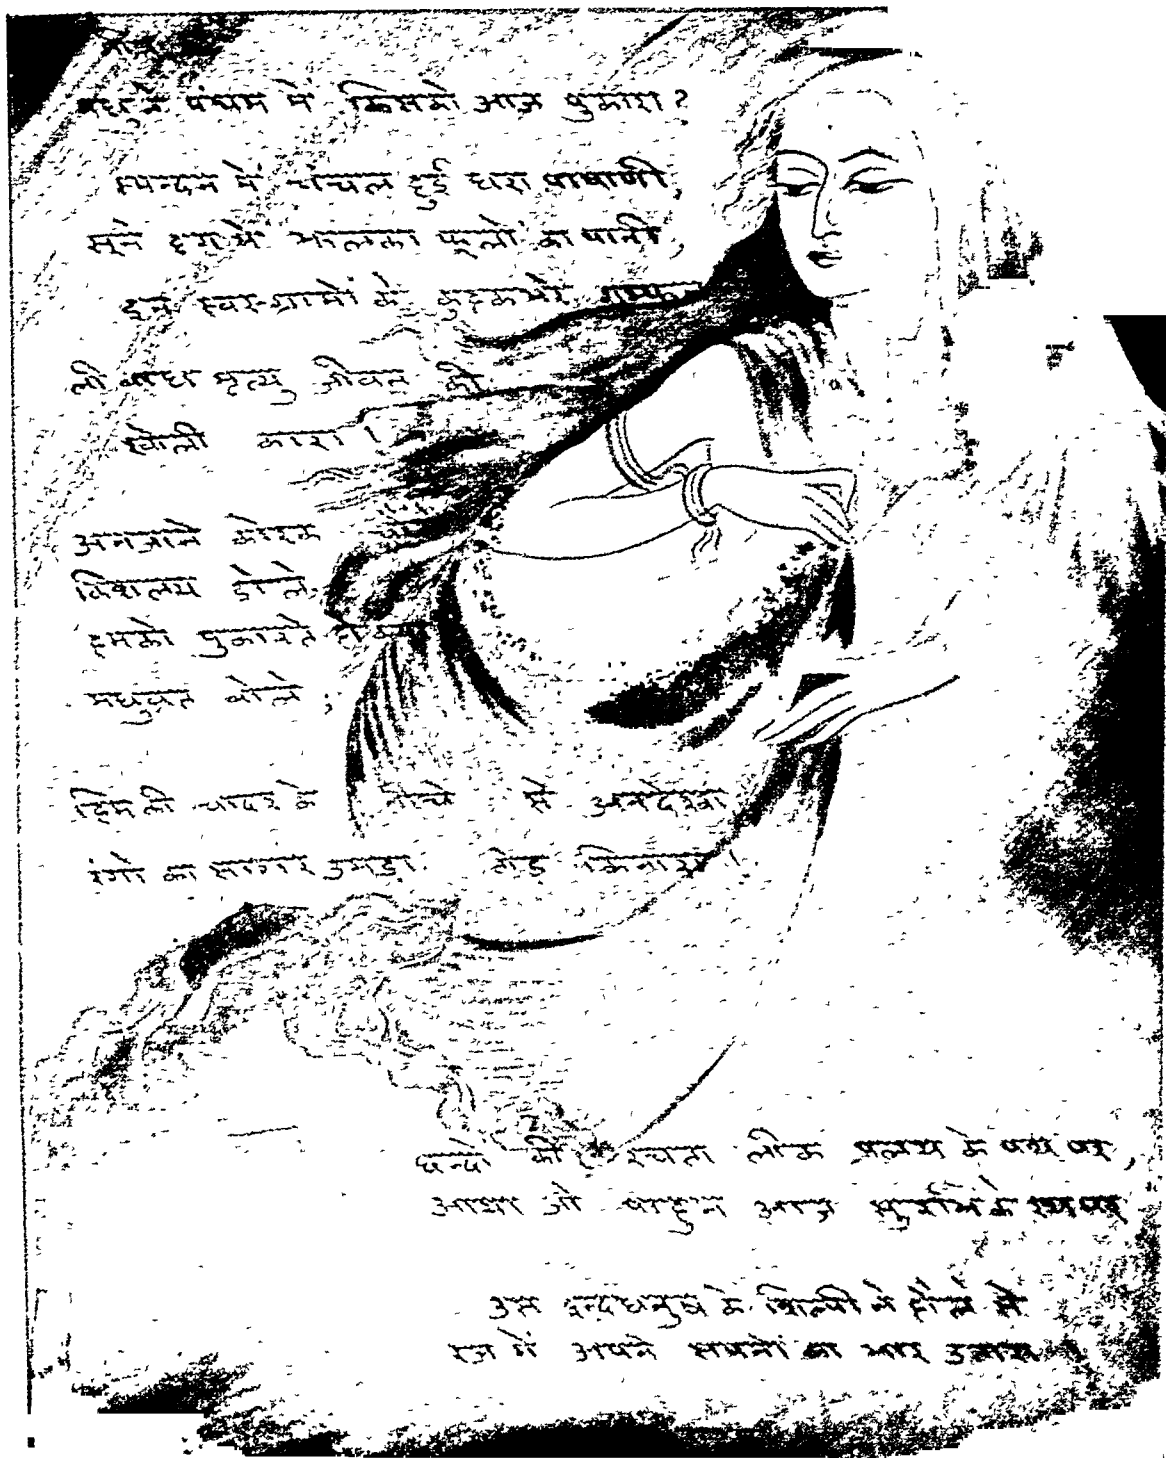 पंचम में किसको आज पुकारा?
स्पन्दन में चंचल हुई धरा पाषाणी,
सूने दृग में फूलों का पानी,
इन स्वर-ग्रामों के
ली बांध मृत्यु जीवन की
खोली कारा।
अनजाने कोरक
किशलय डोले,
हमको पुकारते
मधुव्रत बोले;
झिमली चादर के नीचे से अनदेखा
रंगों का सागर उमड़ा तोड़ किनारा।
छन्दों की रचता लीक प्रलय के पथ पर,
आया जो पाहुन आज सुरभि के रथ पर
उस इन्द्रधनुष के शिल्पी ने हौले से
रज में अपने सपनों का भार उतारा